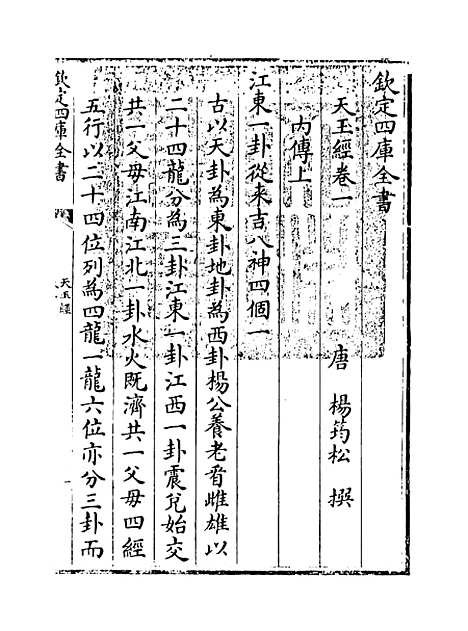 欽定四庫全書
天玉經卷一
唐 楊筠松 撰
內傳上
江東一卦從來吉八神四個一
古以天卦為東卦地卦為西卦楊公養老看雌雄以
二十四龍分為三卦江東一卦江西一卦震兌始交
共一父母江南江北一卦水火既濟共一父母四經
五行以二十四位列為四龍一龍六位亦分三卦而
欽定四庫全書
天玉經